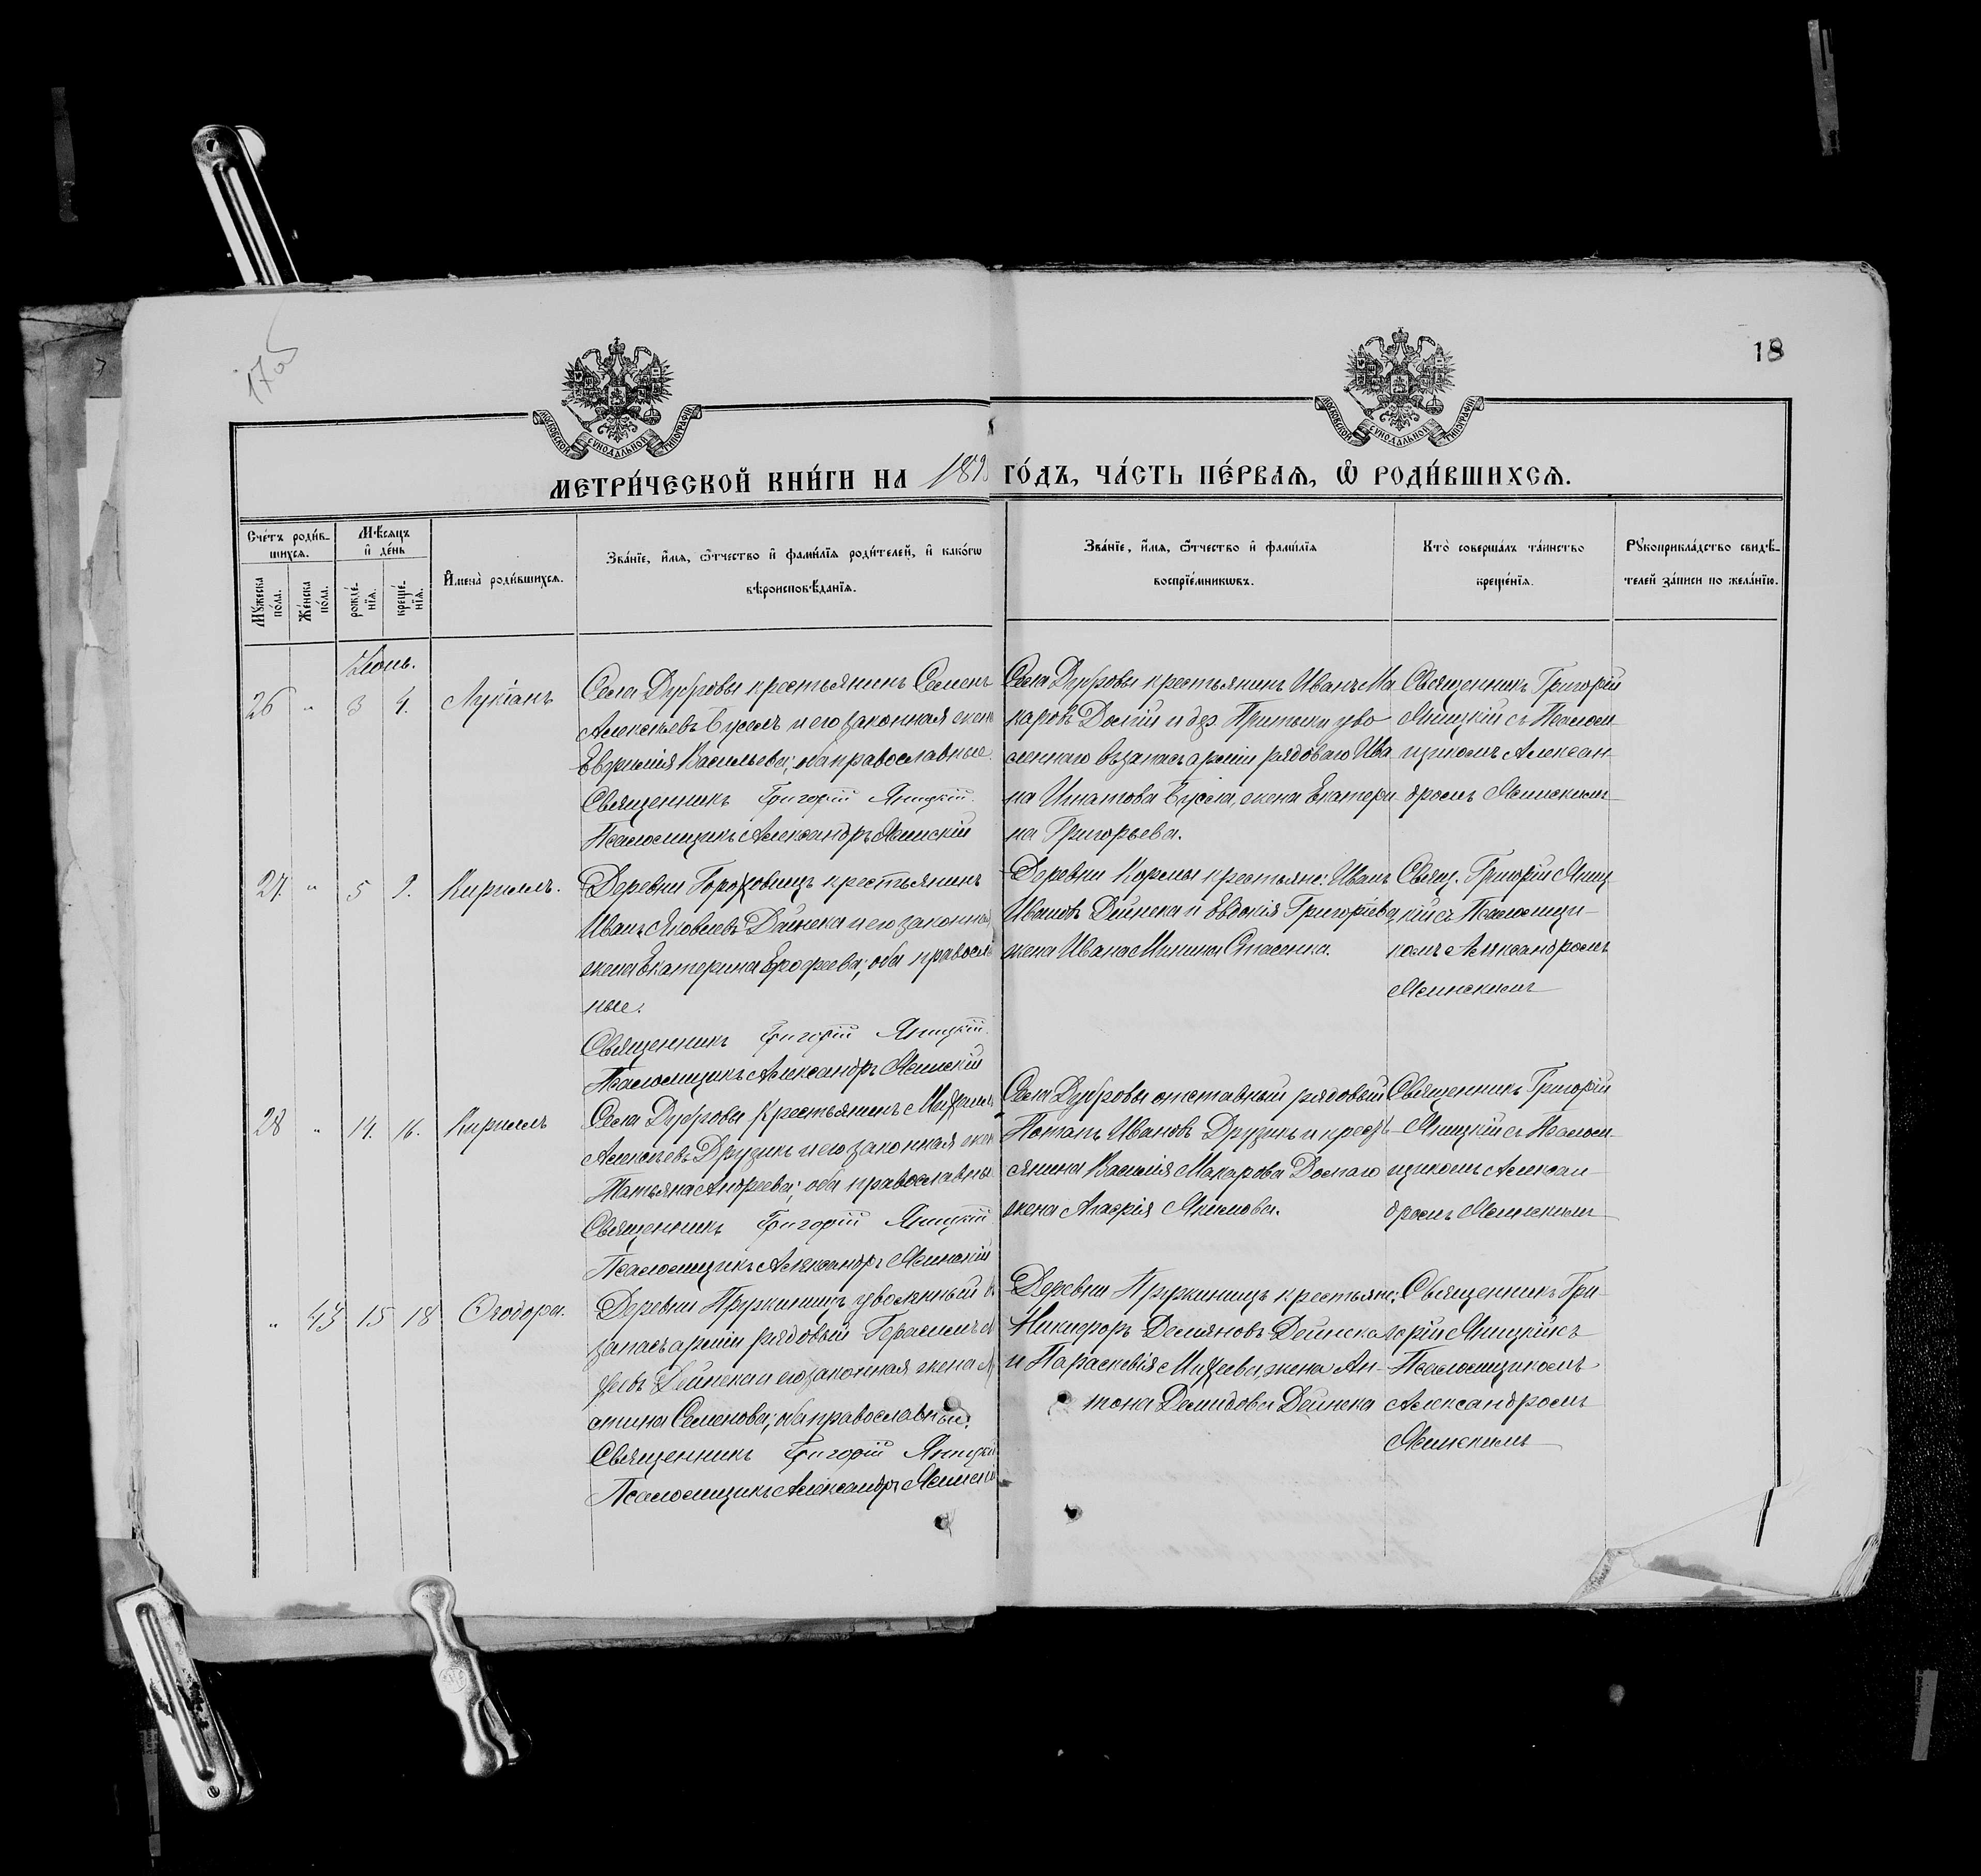 17об
18
МОСКОВСКОЙ СѴНОДАЛЬНОЙ ТИПОГРАФІИ
МОСКОВСКОЙ СѴНОДАЛЬНОЙ ТИПОГРАФІИ
МЕТРИ́ЧЕСКОЙ КНИ́ГИ НА 189 ГО́ДЪ, ЧА́СТЬ ПЕ́РВАЯ, Ѽ РОДИ́ВШИХСЯ.
Сче́тъ роди́в-
шихся.
Мꙋжеска по́ла.
Же́нска по́ла.
Мѣ́сяцъ
и҆ де́нь
рожде́-
нїя.
креще́-
нїя.
И҆мена̀ роди́вшихся.
Зва́нїе, и҆́мя, ѻ҆́тчество и҆ фами́лїя роди́телей, и҆ како́гѡ
вѣроисповѣ́данїя.
Зва́нїе, и҆́мя, ѻ҆́тчество и҆ фами́лїя
воспрїе́мникѡвъ.
Кто̀ соверша́лъ та́инство
креще́нїя.
Рꙋкоприкла́дство свидѣ́-
телей за́писи по жела́нїю.
Іюнь.
26 " 3 4. Лукіанъ
Села Дубровы крестьянинъ Семенъ
Алексѣевъ Бусель и его законная жен
Евфимія Васильева; оба православные.
Священникъ Григорій Яницкій.
Псаломщикъ Александръ Ясинскій
Села Дубровы крестьянинъ Иванъ Ма
каровъ Долгій и дер. Притыки уво
леннаго въ запасъ арміи рядоваго Ива
на Игнатова Бусела, жена Екатери
на Григорьева.
Священникъ Григорій
Яницкій съ Псалом-
щикомъ Алексан-
дромъ Ясинскимъ
27. " 5 9. Кириллъ.
Деревни Гороховищъ крестьянинъ
Иванъ Яковлевъ Дейнека и его законна
жена Екатерина Ерофеева; оба правосла
ные.
Священникъ Григорій Яницкій.
Псаломщикъ Александръ Ясинскій
Деревни Кормы крестьяне: Иванъ
Ивановъ Дейнека и Евдокія Григоріева,
жена Ивана Минина Стасенка.
Свящ. Григорій Яниц
кій съ Псаломщи-
комъ Александромъ
Ясинскимъ
28 " 14. 16. Кириллъ
Села Дубровы крестьянинъ Михаилъ
Алексѣевъ Друзикъ и его законная жен
Татьяна Андреева; оба православны
Священникъ Григорій Яницкій
Псаломщикъ Александръ Ясинскій
Села Дубровы отставный рядовый
Потапъ Ивановъ Друзикъ и кресть
янина Василія Макарова Долгаго
жена Агафія Якимова.
Священникъ Григорій
Яницкій съ Псалом-
щикомъ Алексан-
дромъ Ясинскимъ
" 43 15 18 Ѳеодора.
Деревни Пружинищъ уволенный в
запасъ арміи рядовый Герасимъ
Дейнека и его законная жена
Семенова; оба православные.
Священникъ Григорій Яницкій
Псаломщикъ Александръ Ясинскі
Деревни Пружинищъ крестьяне:
Никифоръ Демяновъ Дейнека
и Параскевія Михеева, жена Ан-
тона Демидова Дейнека
Священникъ Гри-
горій Яницкій съ
Псаломщикомъ
Александромъ
Ясинскимъ